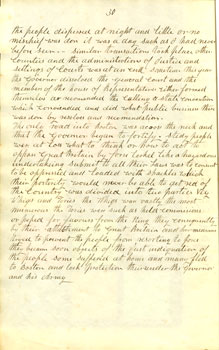 30
the people dispersed at night little or no
mischief was done it was a day such as I had never
before seen — similar transactions took place other
Counties and the administration of Justice and
sittings of Courts was at an end
the Governor dissolved the general Court and the
members of the house of Representatives formed
themselves as recommended the calling a state convention
which convened and did what public business there
was done by resolves and recommendation.
The only road into Boston was across the neck and
that the Governor began to fortify — steady people
were at loss what to think or how to act to
oppose Great Britain by force looked like a hazardous
undertaking submit to all their laws was to consent
to be oppressed and loaded with shackles which
their posterity would never be able to get red of
the Country was divided into two parties viz
Whigs and tories the Whigs was vastly the most
numerous the tories were such as held commissions
or hoped for favours from the King they consequently
in their attachment to Great Britain and for
to prevent the people from resorting to force
they became soon objects of the just indignation of
the people some suffered at home and many fled
to Boston and took protection there under the Governor
and his Army